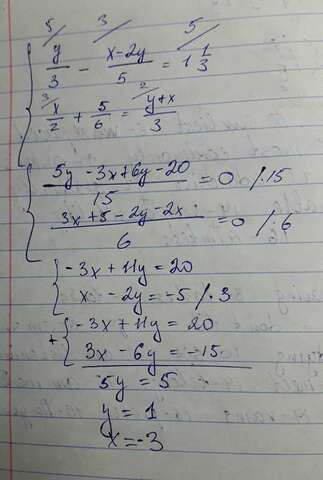 5/ 3/ 5/
y/3 - x-2y/5 = 1 1/3
3/ x/2 + 5/6 = 2/ y+x/3
5y -3x+6y -20/15 = 0 /·15
3x+5-2y-2x/6 = 0 /·6
-3x+11y=20
x -2y=-5 /·3
+ -3x+11y=20
3x -6y=-15
5y=5
y=1
x=-3